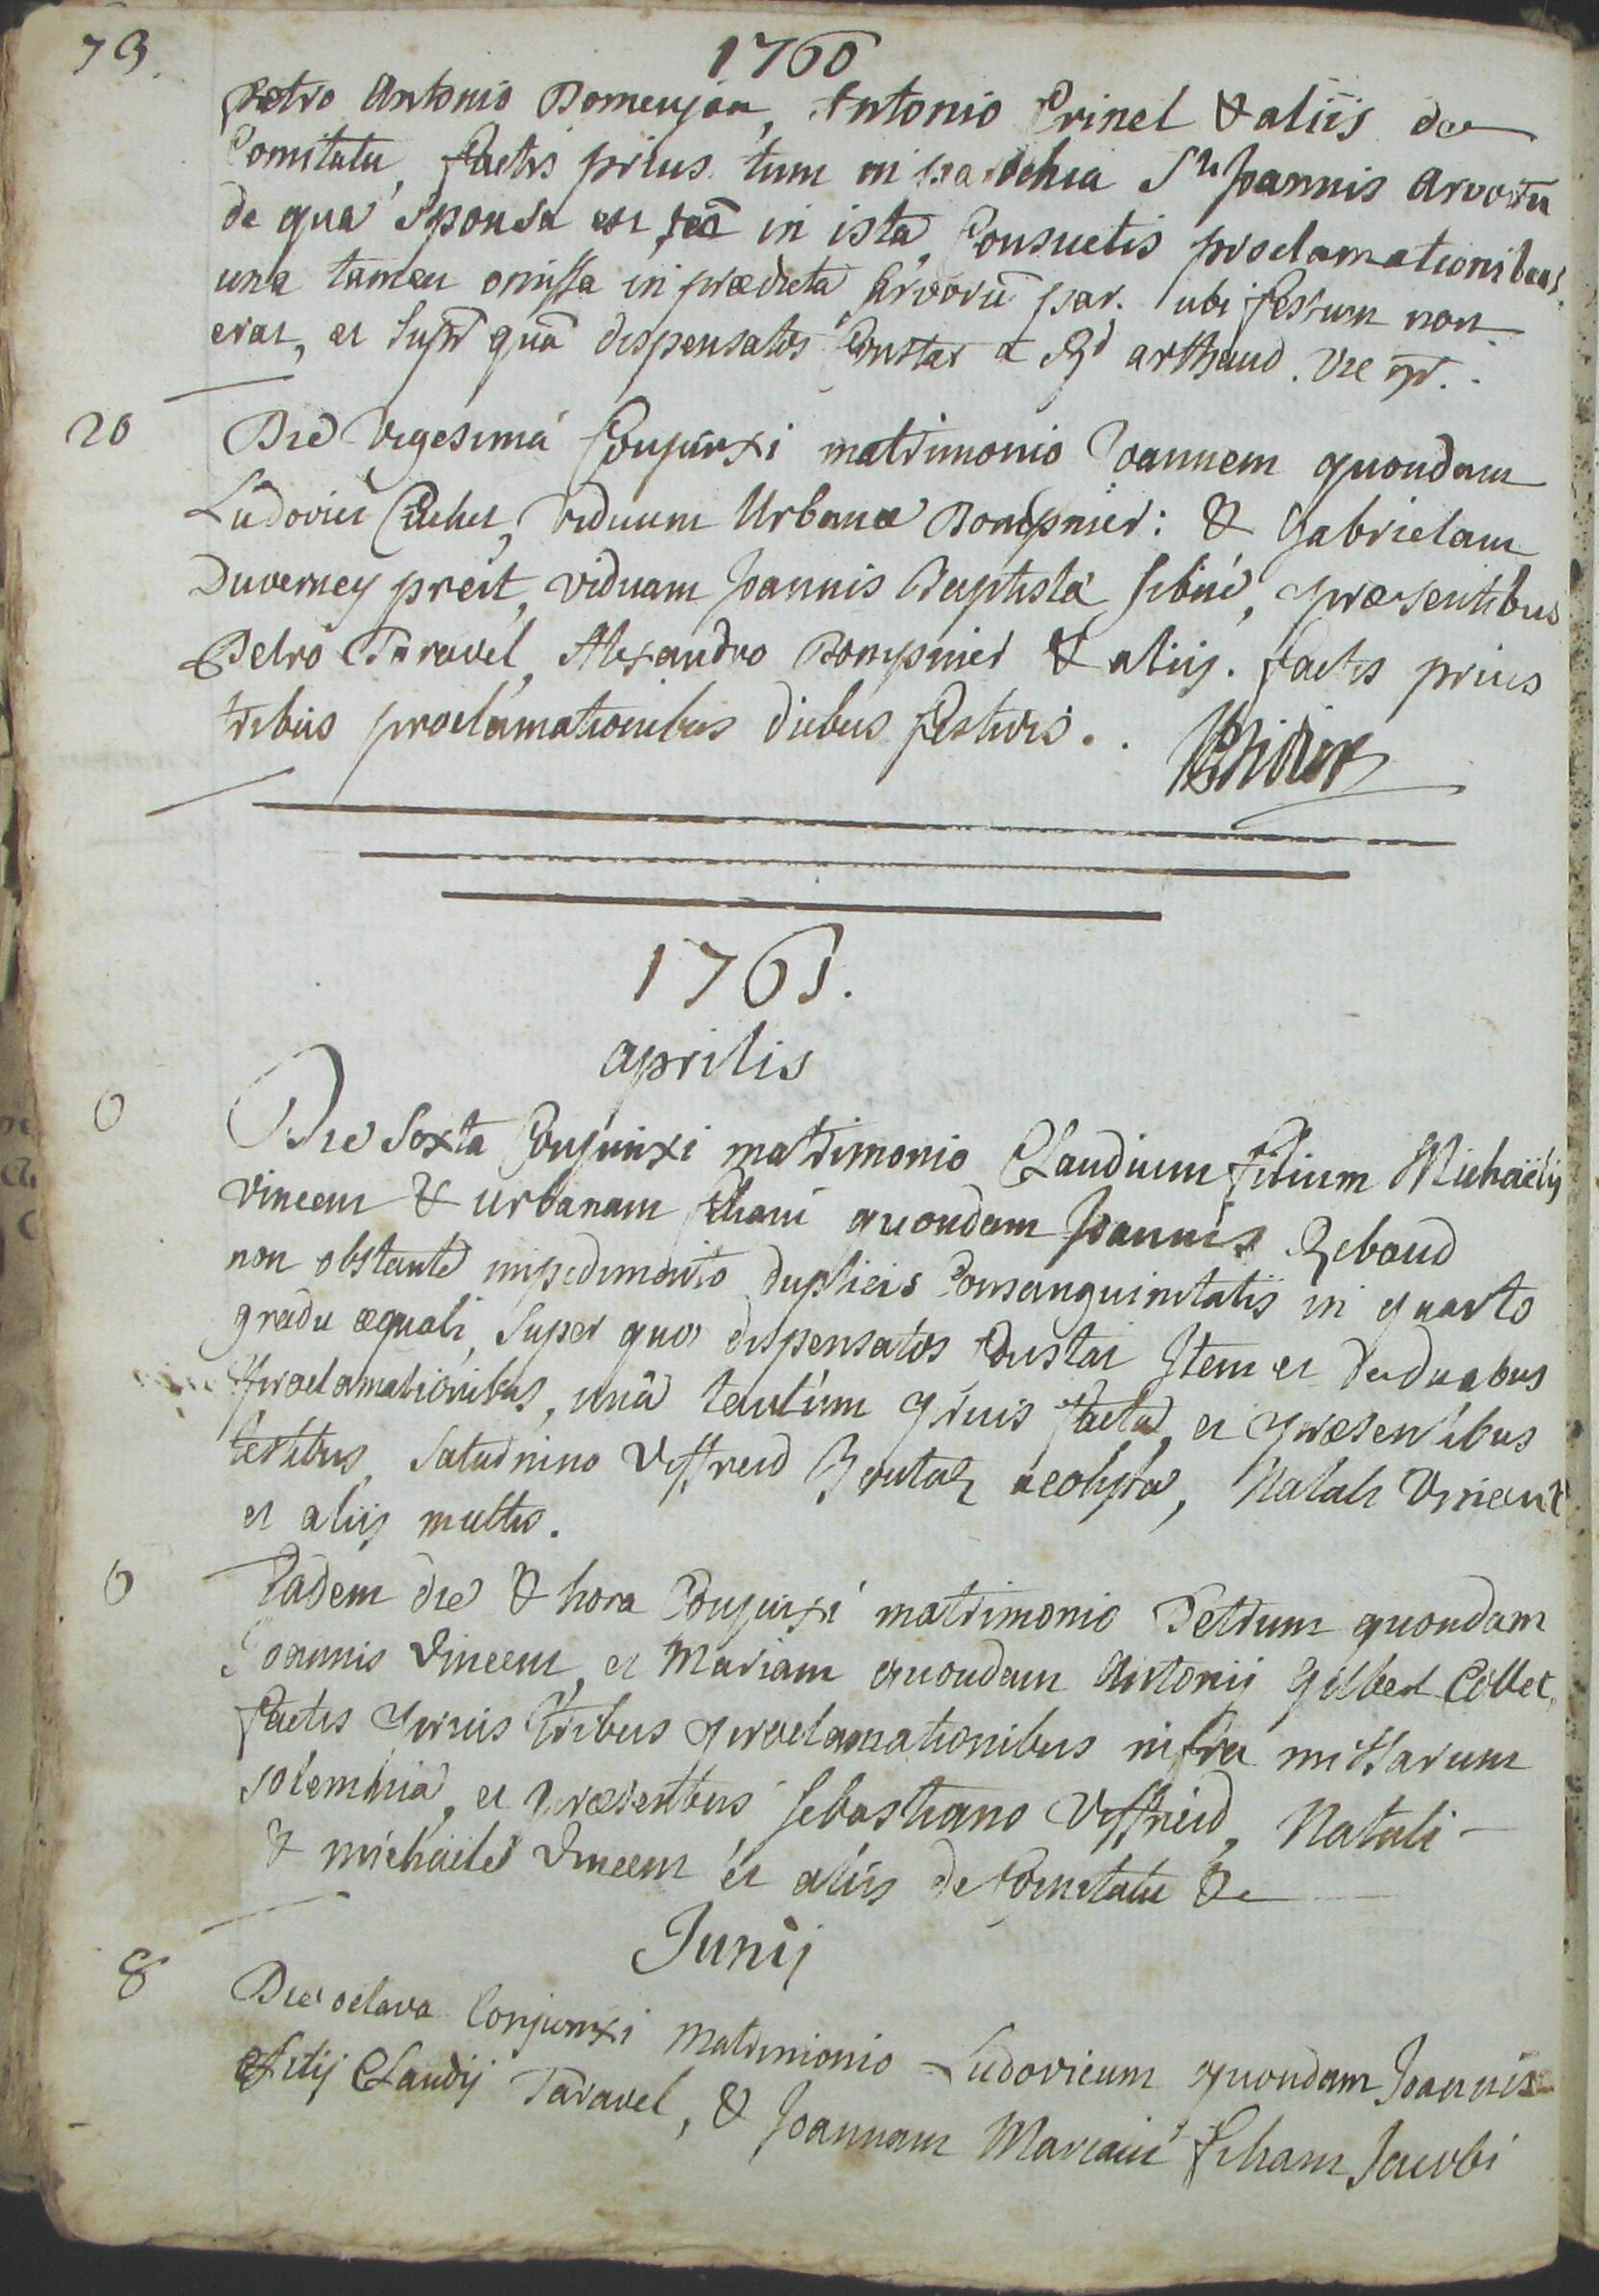 79.
1760
petro Antonio Domenjon, Antonio Crinel & aliis de
Comitatu, factis prius tum in parochia Sti Joannis Arvarū
de qua sponsa est, tū in ista, Consuetis proclamationibus,
una tamen omissa in prædicta Arvarū par. ubi festum non
erat, et supr quā dispensatos Constat a Rd arthaud. vic gr..
20
Die vigesimâ Conjunxi matrimonio Joannem quondam
Ludovici Cuchet, viduum Urbanæ Dompnier: & Gabrielam
Duverney preit, viduam Joannis Baptistæ Sibué, præsentibus
Petro Taravel, Alexandro Dompnier & aliis. factis prius
tribus proclamationibus diebus festivis..
1761.
aprilis
6
Die Sexta Conjunxi matrimonio Claudium filium Michaëlis
vincent & urbanam filiam quondam Joannis Reboud
non obstante impedimento duplicis Consanguinitatis in quarto
gradu æquali, super quo dispensatos Constat Item et de duabus
proclamationibus, unâ tantùm prius factâ, et præsentibus
testibus, Saturnino Viffreid acolytha, Natali Vincent
et aliis multis.
6
Eadem die & hora Conjunxi matrimonio Petrum quondam
Joannis Vincent, et Mariam quondam Antonij Gilbert Collet,
factis prius tribus proclamationibus infra missarum
solemnia, et præsentibus Sebastiano Viffreid, Natali –
& michaële Vincent et aliis de Comitatu &c
Junij
8
Die octava Conjunxi Matrimonio Ludovicum quondam Joannis
filij Claudij Taravel, & Joannam Mariam filiam Jacobi